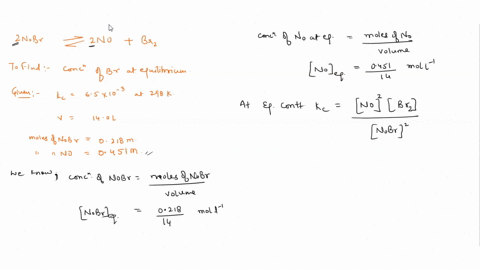 2NoBr ⇌ 2NO + Br2
To Find :- concⁿ of Br at equilibrium
Given :- kc = 6.5 x 10⁻³ at 298 k
v = 14.0 L
moles of NoBr = 0.218 m
" " NO = 0.451 m
We know, concⁿ of NOBr = moles of NoBr / volume
[NoBr]eq. = 0.218 / 14 mol l⁻¹
concⁿ of NO at eq. = moles of No / volume
[No]eq. = 0.451 / 14 mol l⁻¹
At Eq. constt Kc = [NO]² [Br2] / [NoBr]²